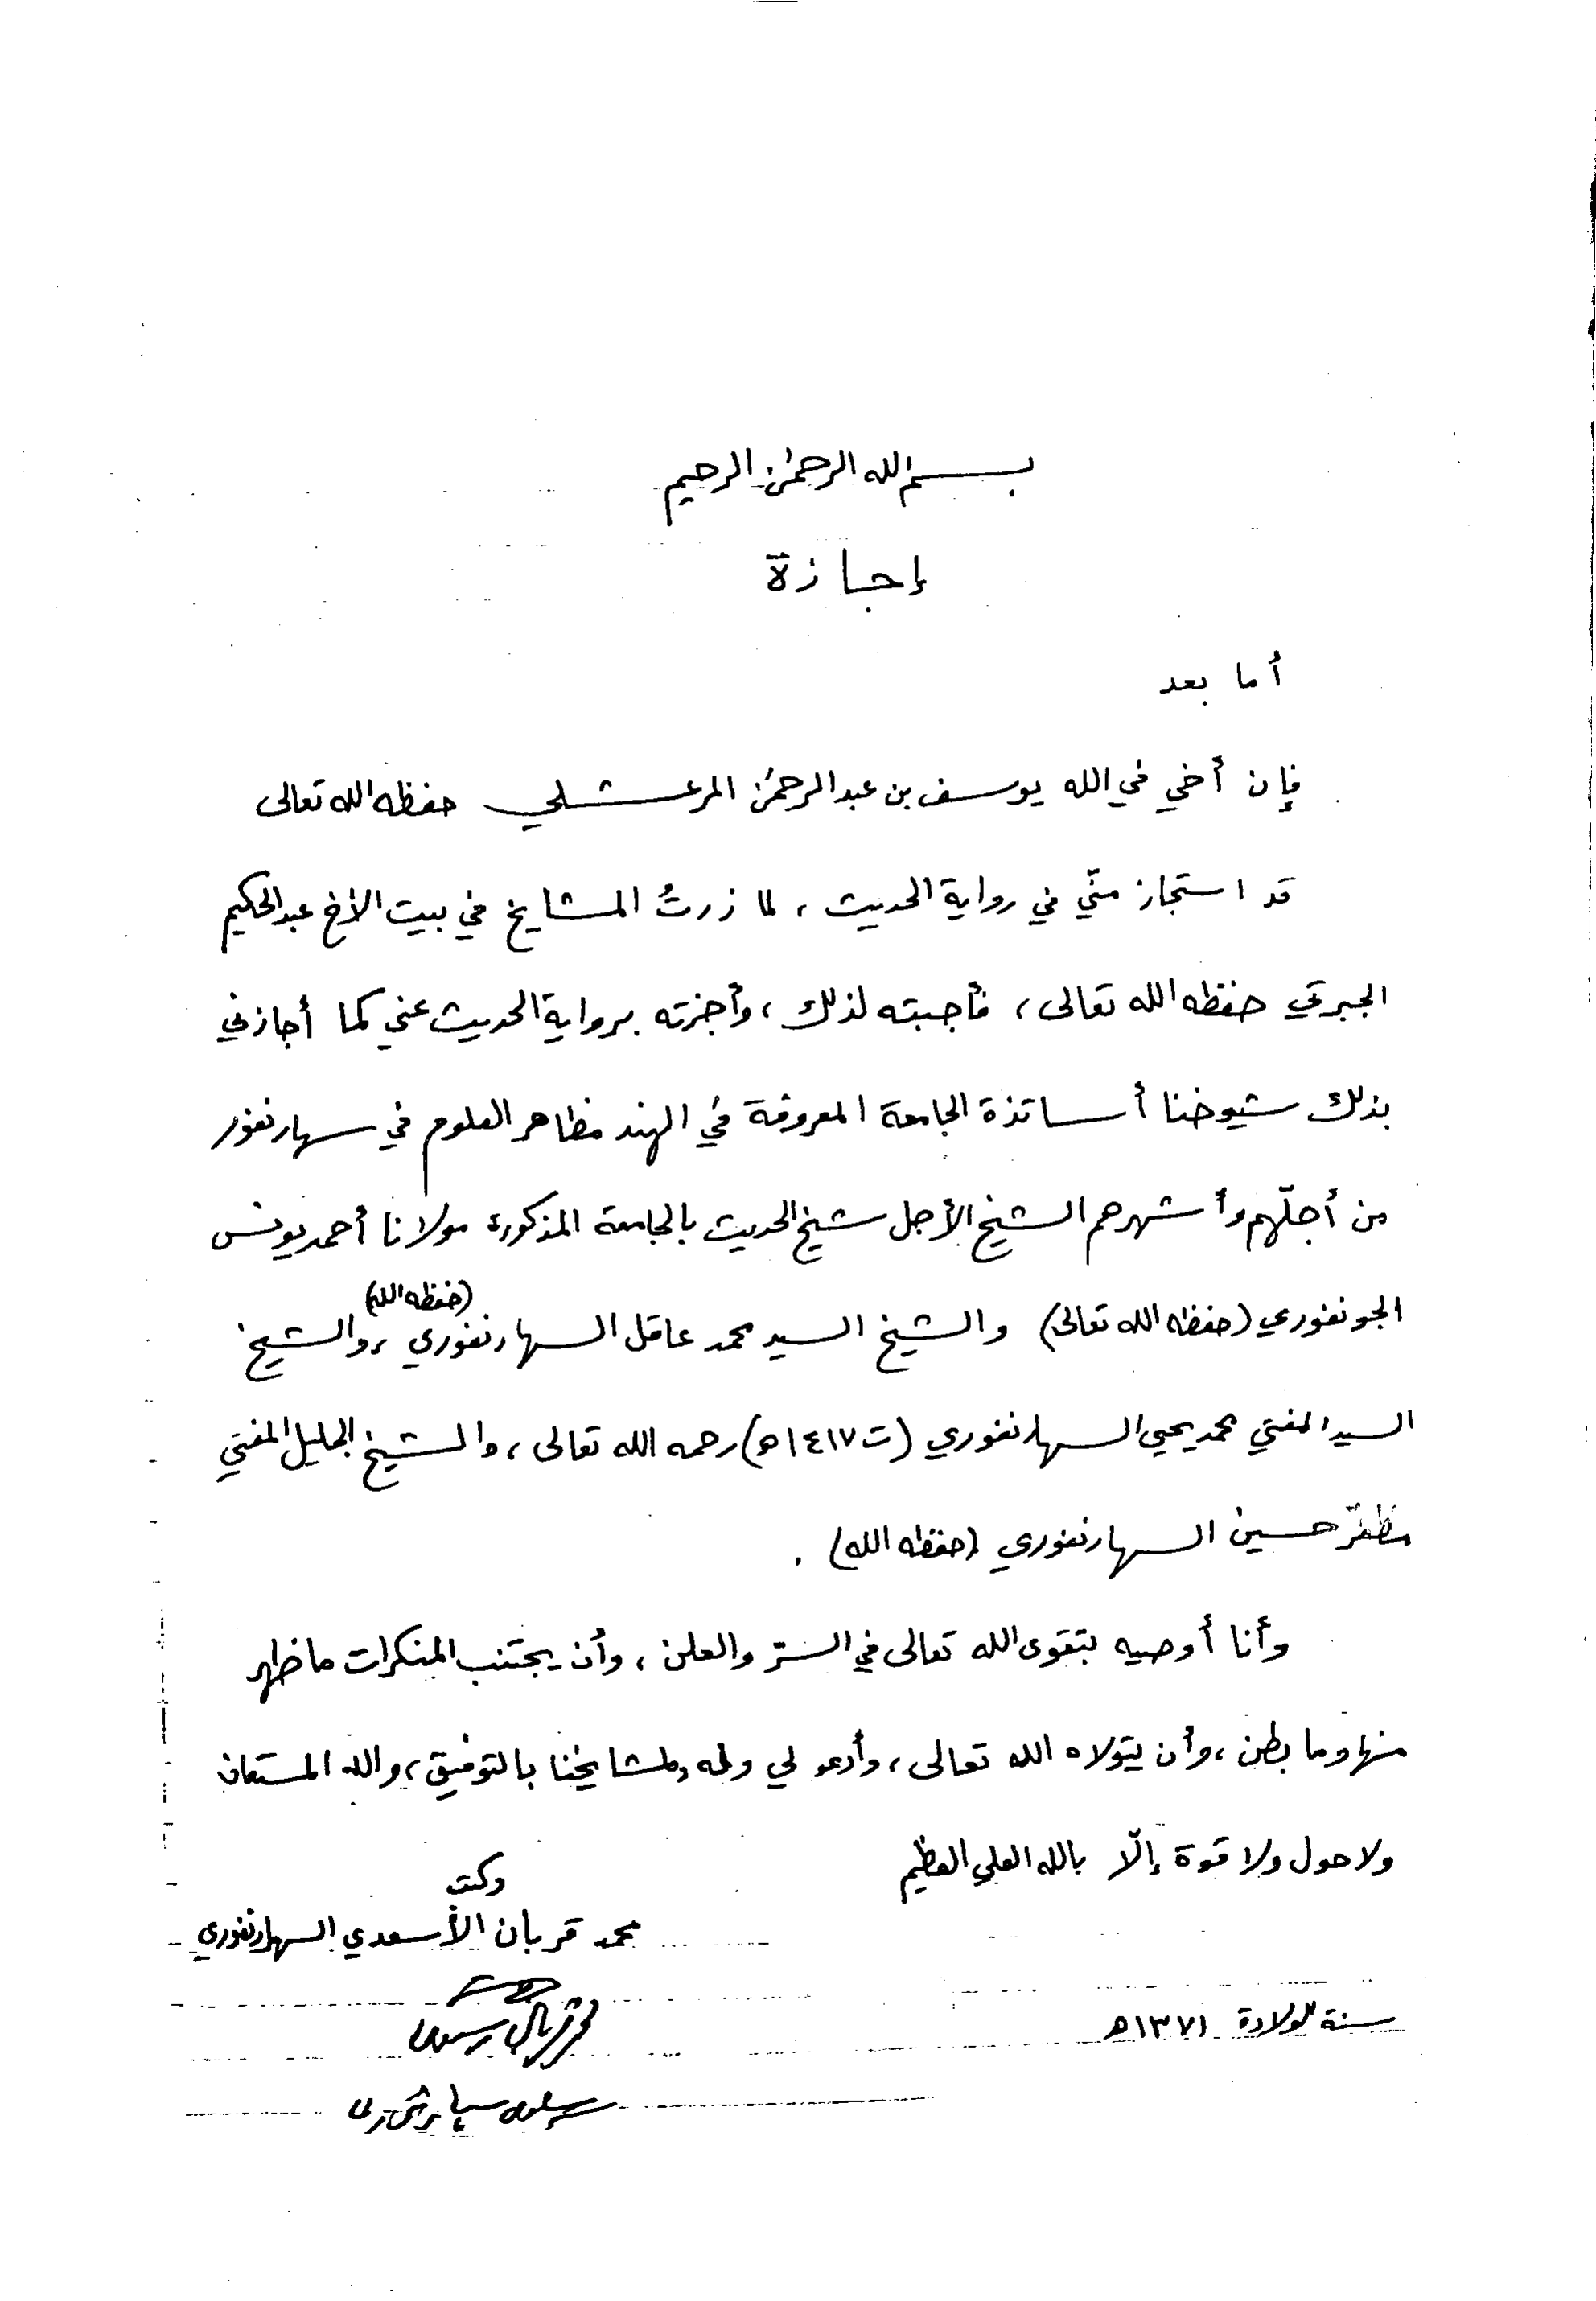 بسم الله الرحمٰن الرحيم
إجازة
أما بعد
فإن أخي في الله يوسف بن عبد الرحمٰن المرعشلي حفظه الله تعالى
قد استجاز منّي في رواية الحديث ، لما زرتُ المشايخ في بيت الأخ عبد الحكيم
الجبرتي حفظه الله تعالى ، فأجبته لذلك ، وأجزته برواية الحديث عني كما أجازني
بذلك شيوخنا أساتذة الجامعة المعروفة في الهند مظاهر العلوم في سهارنفور
من أجلّهم وأشهرهم الشيخ الأجل شيخ الحديث بالجامعة المذكورة مولانا أحمد يونس
الجونفوري (حفظه الله تعالى) والشيخ السيد محمد عاقل السهارنفوري (حفظه الله) ، والشيخ
السيد المفتي محمد يحيى السهارنفوري (ت ١٤١٧ هـ) رحمه الله تعالى ، والشيخ الجليل المفتي
مظفّر حسين السهارنفوري (حفظه الله) .
وأنا أوصيه بتقوى الله تعالى في السرّ والعلن ، وأن يجتنب المنكرات ما ظهر
منها وما بطن ، وأن يتولاه الله تعالى ، وأدعو لي وله ولمشايخنا بالتوفيق ، والله المستعان
ولا حول ولا قوة إلّا بالله العلي العظيم
وكتب
محمد قربان الأسعدي السهارنفوري
سنة الولادة ١٣٧١ هـ